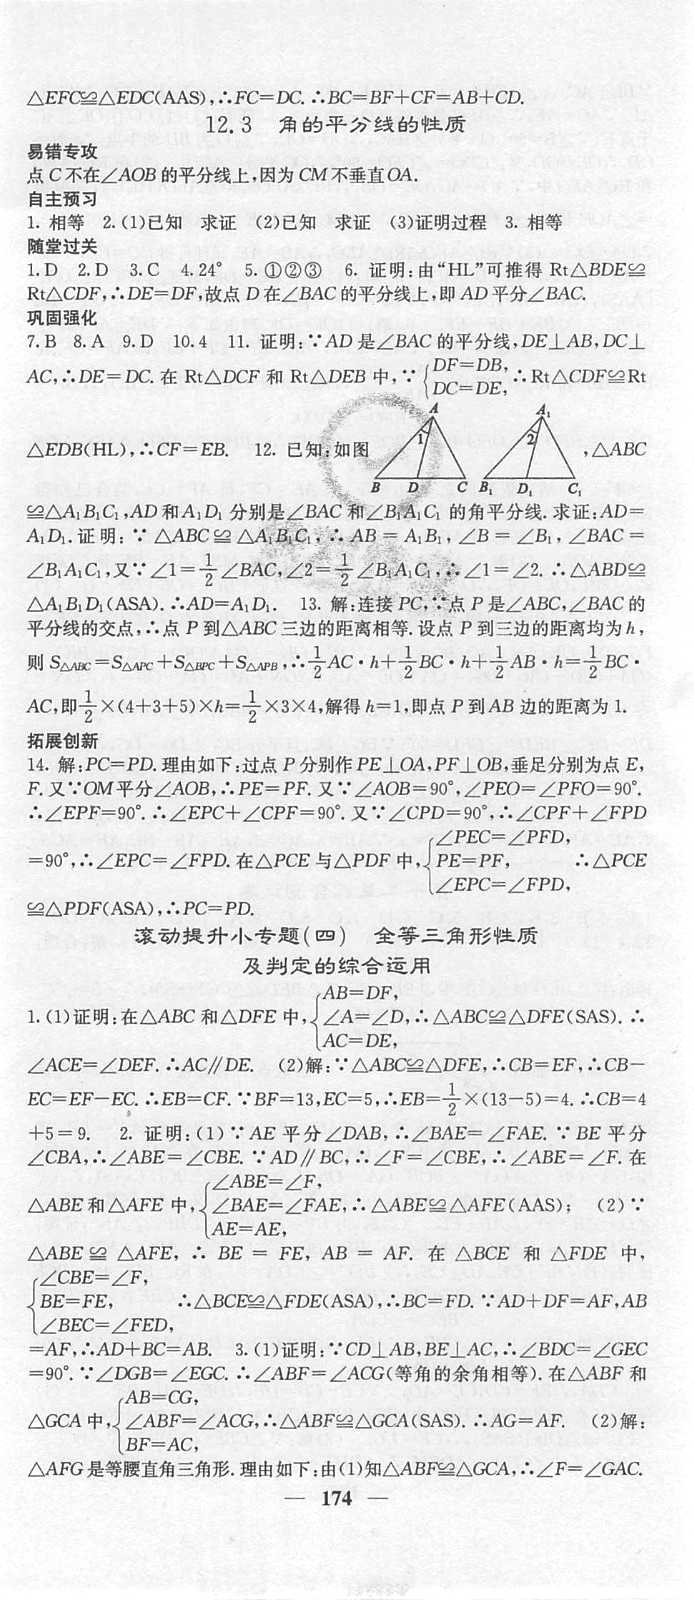 △EFC≌△EDC(AAS),∴FC=DC.∴BC=BF+CF=AB+CD.
12.3 角的平分线的性质
易错专攻
点C不在∠AOB的平分线上,因为CM不垂直OA.
自主预习
1. 相等 2.(1)已知 求证 (2)已知 求证 (3)证明过程 3. 相等
随堂过关
1.D 2.D 3.C 4.24° 5.①②③ 6. 证明:由“HL”可推得 Rt△BDE≌
Rt△CDF,∴DE=DF,故点D在∠BAC的平分线上,即AD平分∠BAC.
巩固强化
7.B 8.A 9.D 10.4 11. 证明:∵AD是∠BAC的平分线,DE⊥AB,DC⊥
AC,∴DE=DC.在 Rt△DCF 和 Rt△DEB 中,∵{DF=DB, DC=DE,∴Rt△CDF≌Rt
△EDB(HL),∴CF=EB. 12. 已知:如图 A 1 B D C A₁ 2 B₁ D₁ C₁ ,△ABC
≌△A₁B₁C₁,AD和A₁D₁分别是∠BAC和∠B₁A₁C₁的角平分线.求证:AD=
A₁D₁.证明:∵△ABC≌△A₁B₁C₁,∴AB=A₁B₁,∠B=∠B₁,∠BAC=
∠B₁A₁C₁,又∵∠1=1/2∠BAC,∠2=1/2∠B₁A₁C₁,∴∠1=∠2.∴△ABD≌
△A₁B₁D₁(ASA).∴AD=A₁D₁. 13. 解:连接PC,∵点P是∠ABC,∠BAC的
平分线的交点,∴点P到△ABC三边的距离相等.设点P到三边的距离均为h,
则S△ABC=S△APC+S△BPC+S△APB,∴1/2AC·h+1/2BC·h+1/2AB·h=1/2BC·
AC,即1/2×(4+3+5)×h=1/2×3×4,解得h=1,即点P到AB边的距离为1.
拓展创新
14. 解:PC=PD.理由如下:过点P分别作PE⊥OA,PF⊥OB,垂足分别为点E,
F.又∵OM平分∠AOB,∴PE=PF.又∵∠AOB=90°,∠PEO=∠PFO=90°.
∴∠EPF=90°.∴∠EPC+∠CPF=90°.又∵∠CPD=90°,∴∠CPF+∠FPD
=90°,∴∠EPC=∠FPD.在△PCE与△PDF中,{∠PEC=∠PFD, PE=PF, ∠EPC=∠FPD, ∴△PCE
≌△PDF(ASA),∴PC=PD.
滚动提升小专题(四) 全等三角形性质
及判定的综合运用
1.(1)证明:在△ABC和△DFE中,{AB=DF, ∠A=∠D, AC=DE,∴△ABC≌△DFE(SAS).∴
∠ACE=∠DEF.∴AC∥DE. (2)解:∵△ABC≌△DFE,∴CB=EF,∴CB-
EC=EF-EC.∴EB=CF.∵BF=13,EC=5,∴EB=1/2×(13-5)=4.∴CB=4
+5=9. 2. 证明:(1)∵AE平分∠DAB,∴∠BAE=∠FAE.∵BE平分
∠CBA,∴∠ABE=∠CBE.∵AD∥BC,∴∠F=∠CBE,∴∠ABE=∠F.在
△ABE和△AFE中,{∠ABE=∠F, ∠BAE=∠FAE, AE=AE,∴△ABE≌△AFE(AAS); (2)∵
△ABE≌△AFE,∴BE=FE,AB=AF.在△BCE和△FDE中,
{∠CBE=∠F, BE=FE, ∠BEC=∠FED, ∴△BCE≌△FDE(ASA),∴BC=FD.∵AD+DF=AF,AB
=AF,∴AD+BC=AB. 3.(1)证明:∵CD⊥AB,BE⊥AC,∴∠BDC=∠GEC
=90°.∵∠DGB=∠EGC.∴∠ABF=∠ACG(等角的余角相等).在△ABF和
△GCA中,{AB=CG, ∠ABF=∠ACG, BF=AC,∴△ABF≌△GCA(SAS).∴AG=AF. (2)解:
△AFG是等腰直角三角形.理由如下:由(1)知△ABF≌△GCA,∴∠F=∠GAC.
— 174 —